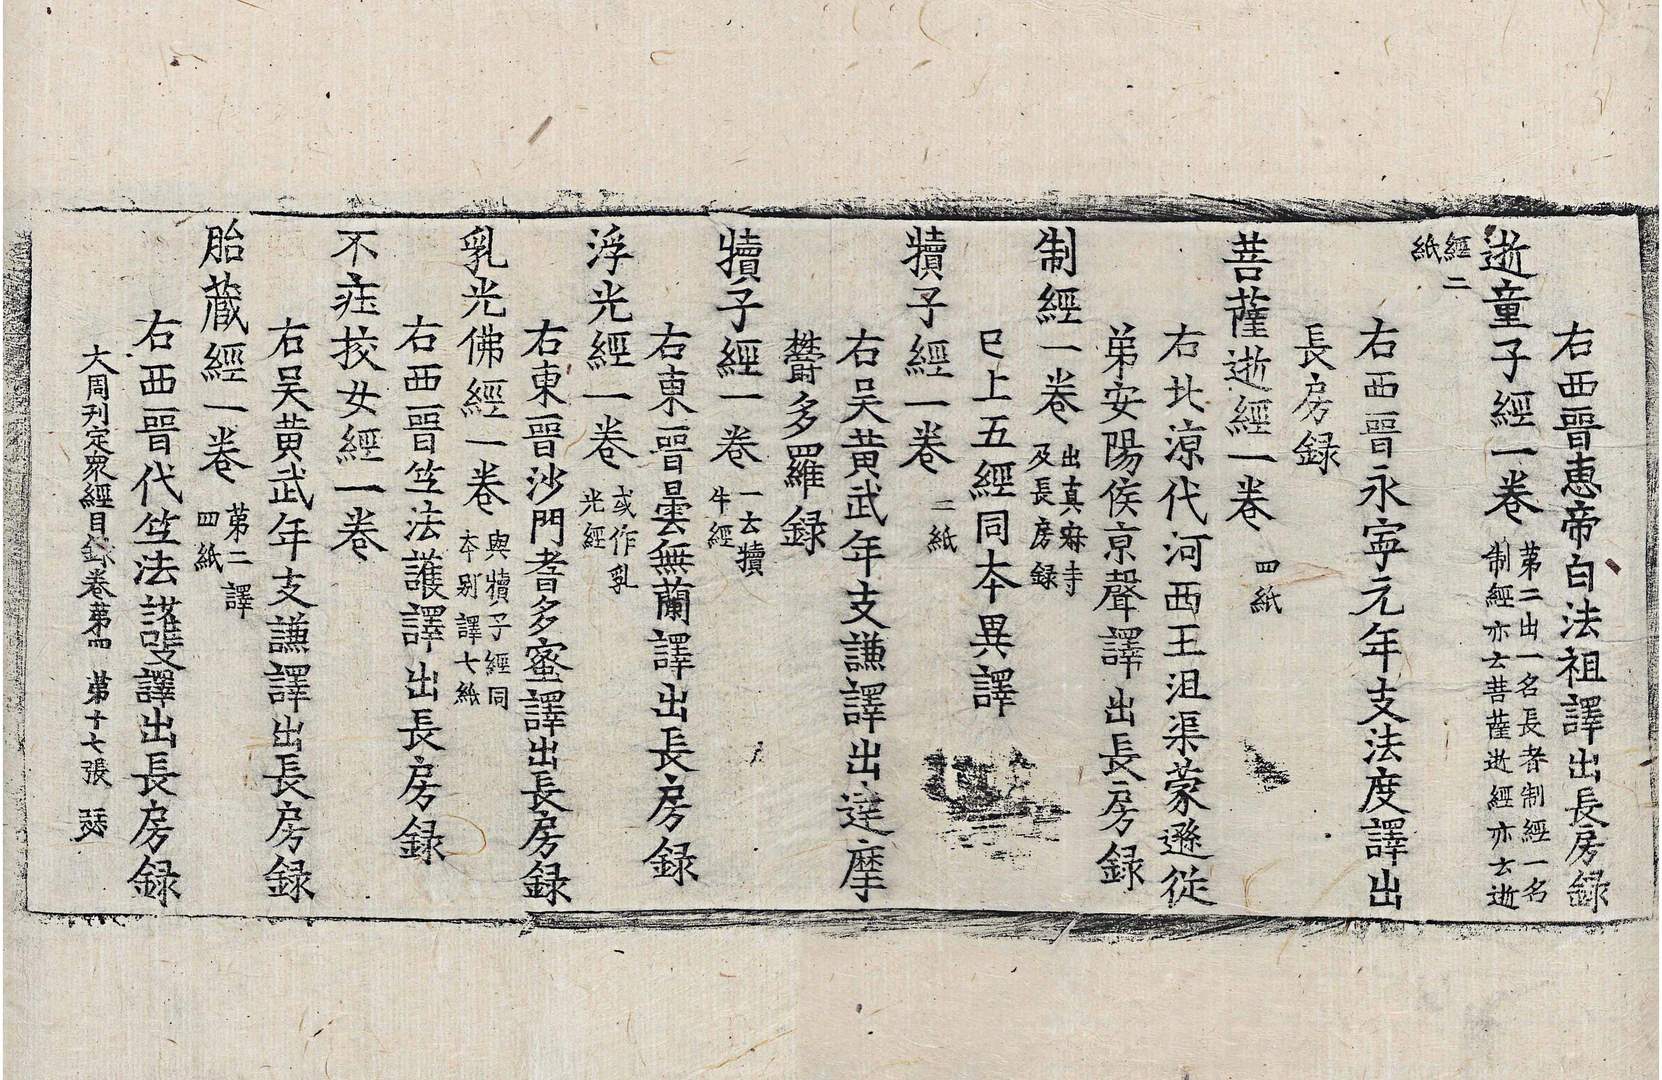 右西晉惠帝白法祖譯出長房録
逝童子經一卷 第二出一名長者制經一名
制經亦云菩薩逝經亦云逝
經二
紙
右西晉永寧元年支法度譯出
長房録
菩薩逝經一卷 四紙
右北涼代河西王沮渠蒙遜從
弟安陽侯京聲譯出長房録
制經一卷 出真寂寺
及長房録
巳上五經同本異譯
犢子經一卷 二紙
右吴黄武年支謙譯出達摩
欝多羅録
犢子經一卷 一云犢
牛經
右東晉曇無蘭譯出長房録
浮光經一卷 或作乳
光經
右東晉沙門耆多蜜譯出長房録
乳光佛經一卷 與犢子經同
本别譯七紙
右西晉竺法護譯出長房録
不莊挍女經一卷
右吴黄武年支謙譯出長房録
胎藏經一卷 第二譯
四紙
右西晉代竺法護譯出長房録
大周刊定衆經目録卷第四 第十七張 瑟